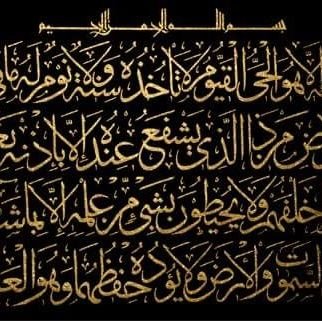 بسم الله الرحمن الرحيم
لا هو الحي القيوم لا تأخذه سنة ولا نوم له ما في
من ذا الذي يشفع عنده إلا بإذنه
خلفهم ولا يحيطون بشيء من علمه إلا بما شا
السموات والأرض ولا يؤده حفظهما وهو العـ